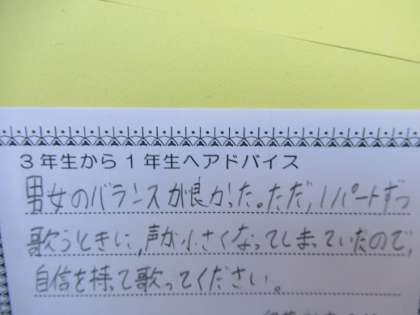 3年生から1年生へアドバイス
男女のバランスが良かった。ただ、1パートずつ
歌うときに、声が小さくなってしまっていたので、
自信を持って歌ってください。